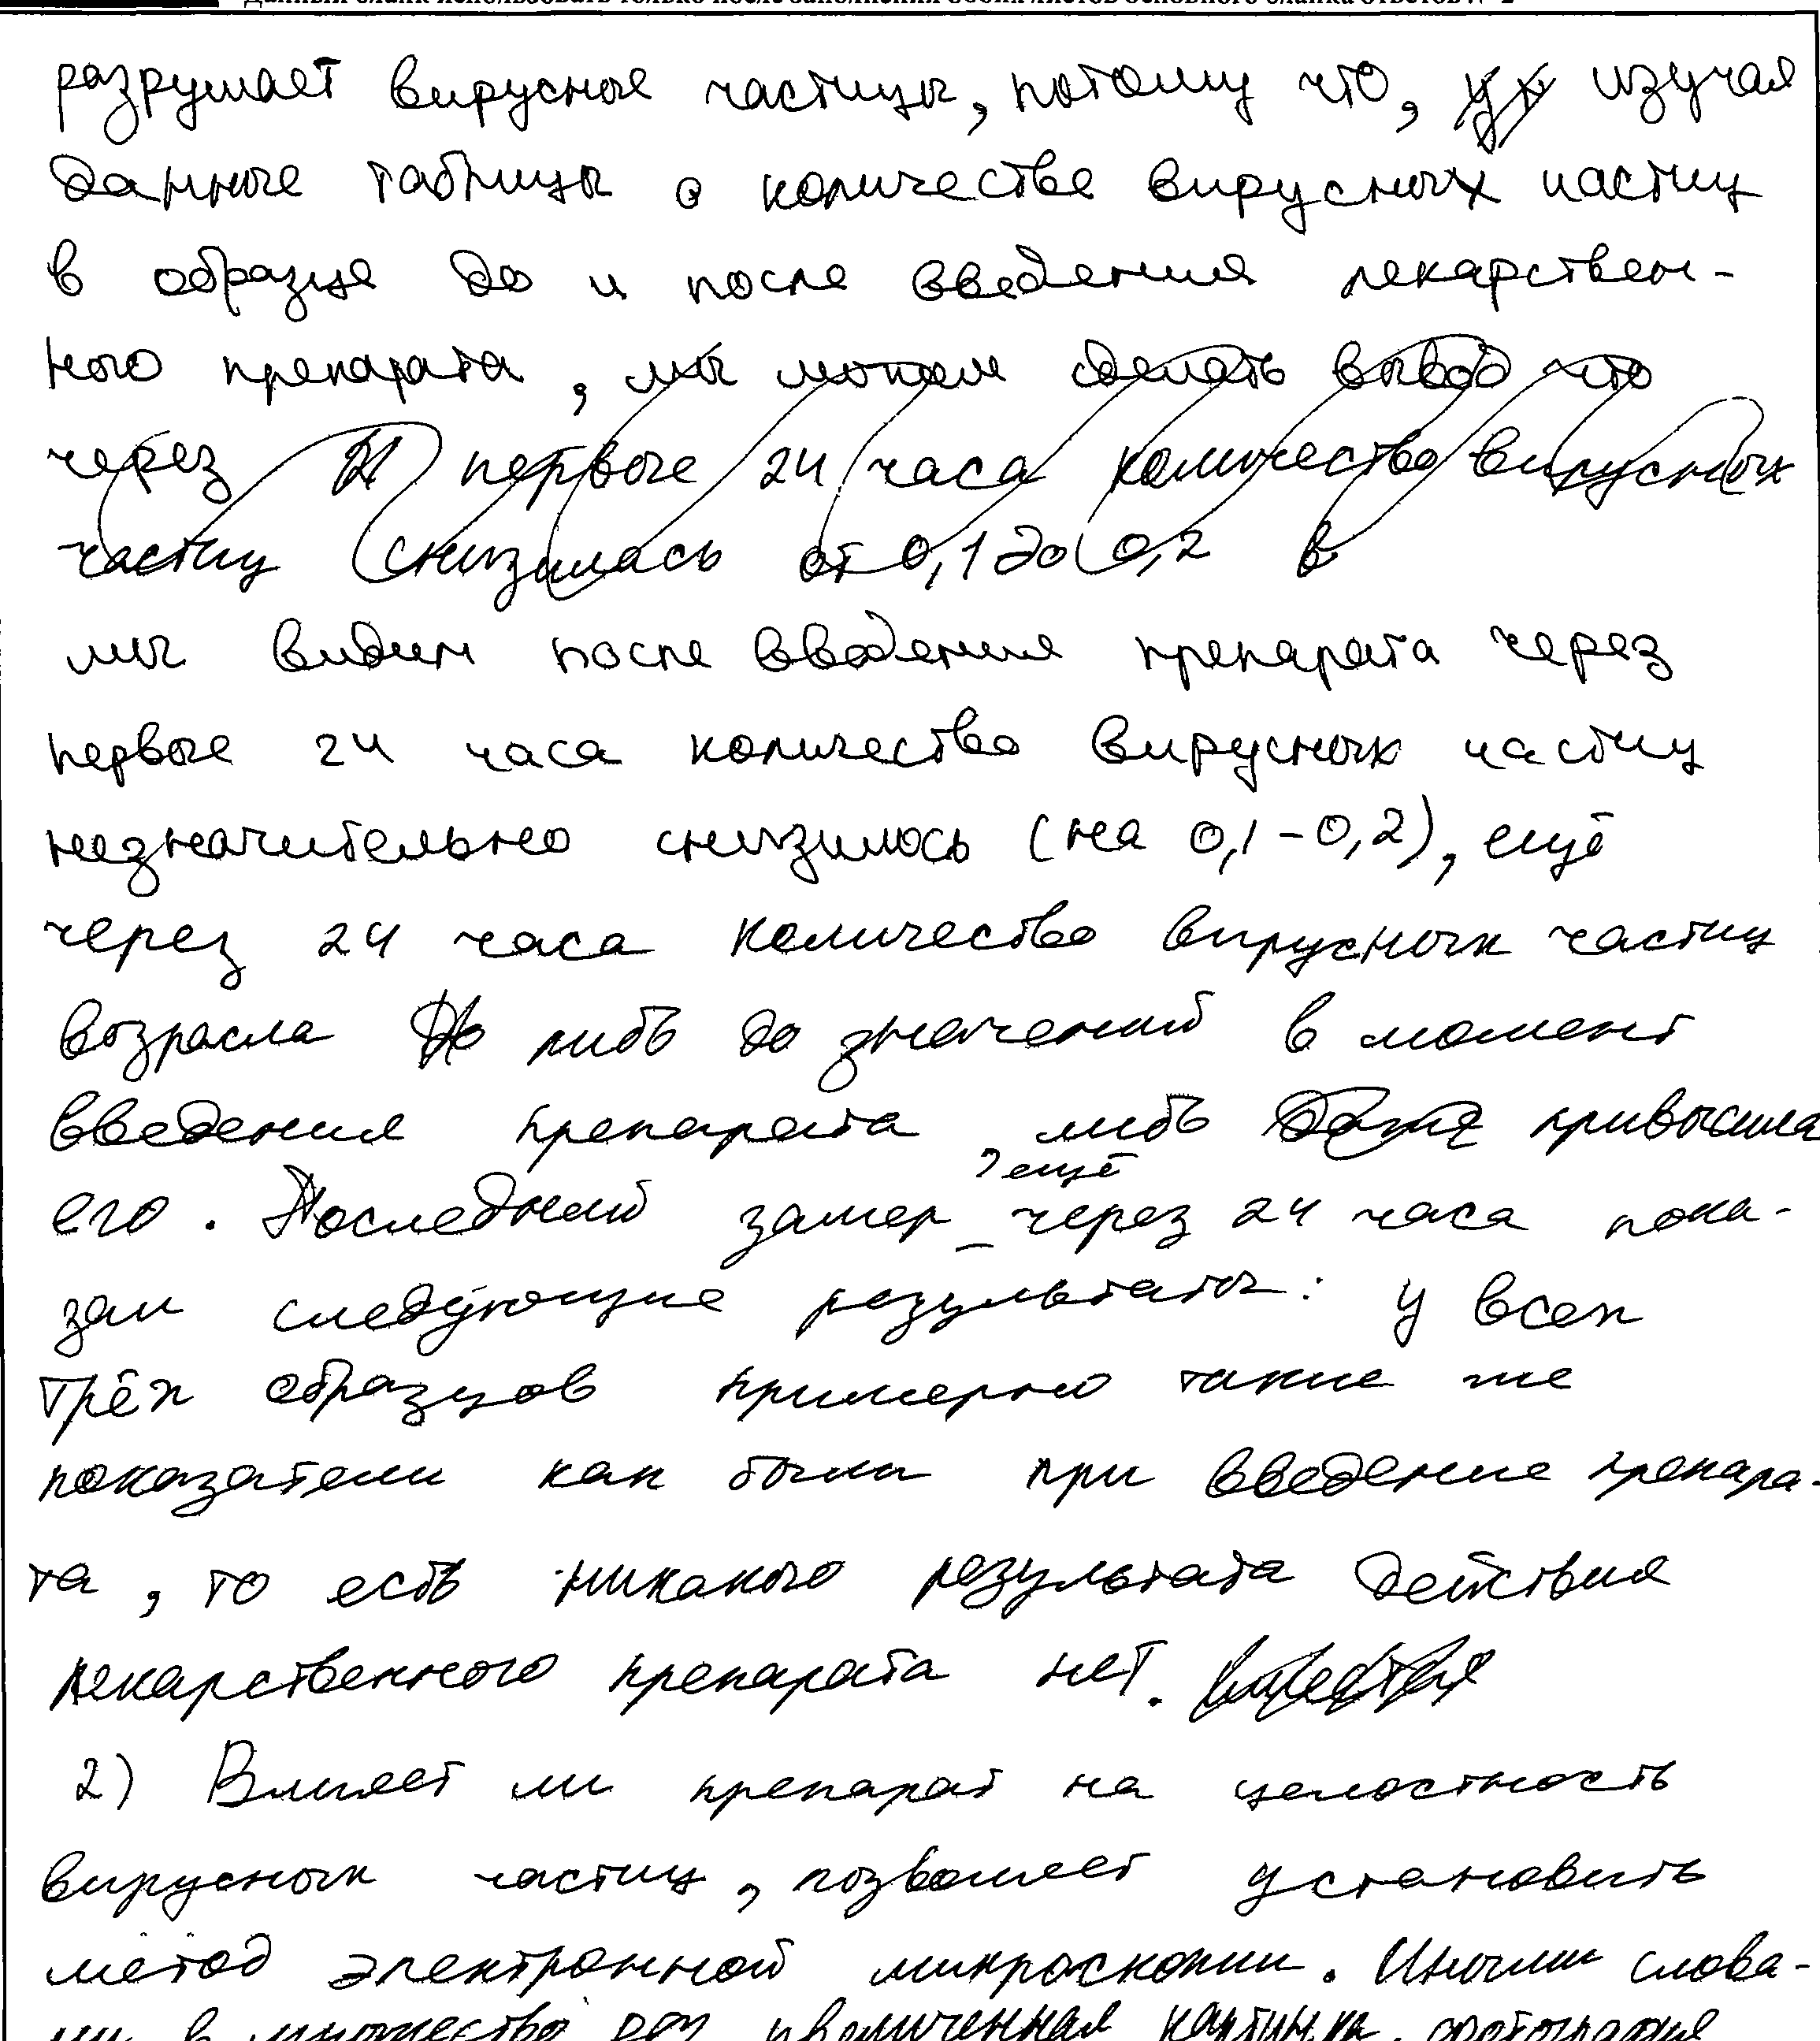 Данный бланк использовать только после заполнения обоих листов основного бланка ответов № 2
разрушает вирусные частицы, потому что, изучая
данные таблицы о количестве вирусных частиц
в образце до и после введения лекарствен-
ного препарата, мы можем сделать вывод что
через 21 первые 24 часа количество вирусных
частиц снизилась от 0,1 до 0,2 в
мы видим после введения препарата через
первые 24 часа количество вирусных частиц
незначительно снизилось (на 0,1-0,2), ещё
через 24 часа количество вирусных частиц
возрасла либо до значений в момент
введения препарата, либо привысила
его. Последний замер, ещё через 24 часа пока-
зал следующие результаты: у всех
трёх образцов примерно такие же
показатели как были при введение препара-
та, то есть никакого результата действия
лекарственного препарата нет.
2) Влияет ли препарат на целостность
вирусных частиц, позволяет установить
метод электронной микроскопии. Иными слова-
ми в множество раз увеличенная картинка, фотография